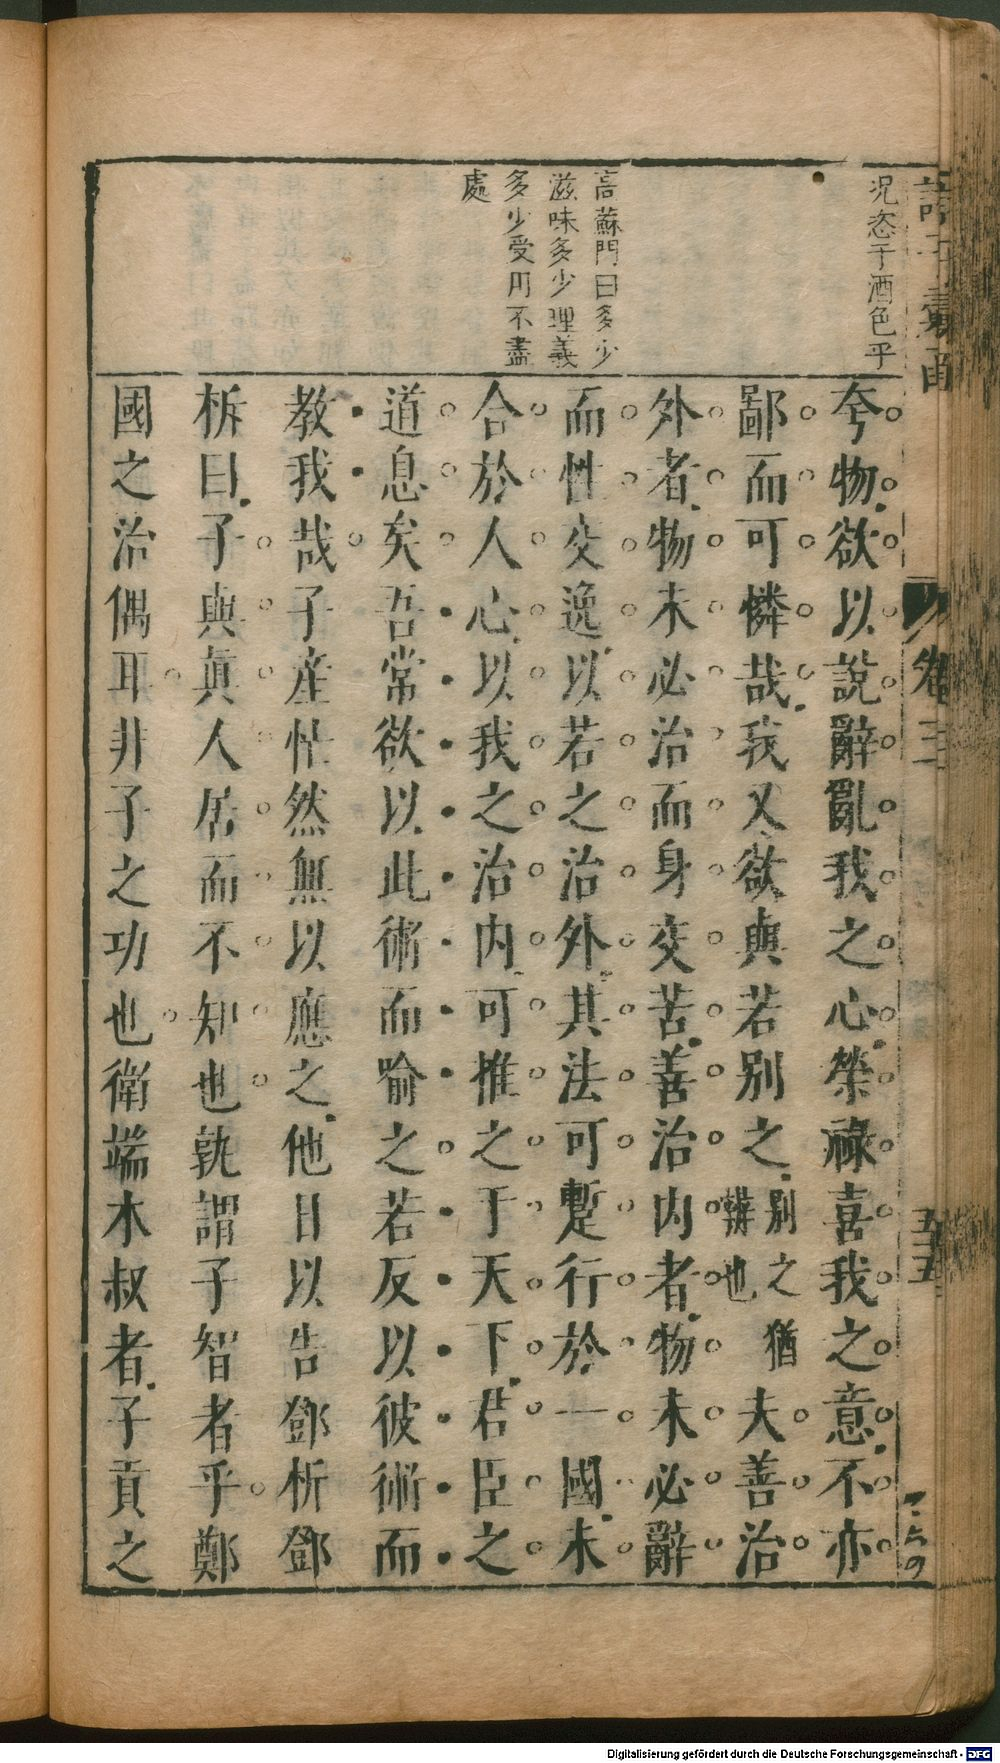 況恣于酒色乎
高蘇門曰多少
滋味多少理義
多少受用不盡
處
夸物欲以說辭亂我之心榮祿喜我之意不亦
鄙而可憐哉我又欲與若別之別之猶辨也夫善治
外者物未必治而身交苦善治內者物未必辭
而性交逸以若之治外其法可暫行於一國未
合於人心以我之治內可推之于天下君臣之
道息矣吾常欲以此術而喻之若反以彼術而
教我哉子產忙然無以應之他日以告鄧析鄧
析曰子與眞人居而不知也孰謂子智者乎鄭
國之治偶耳非子之功也衛端木叔者子貢之
卷三
五五
Digitalisierung gefördert durch die Deutsche Forschungsgemeinschaft - DFG